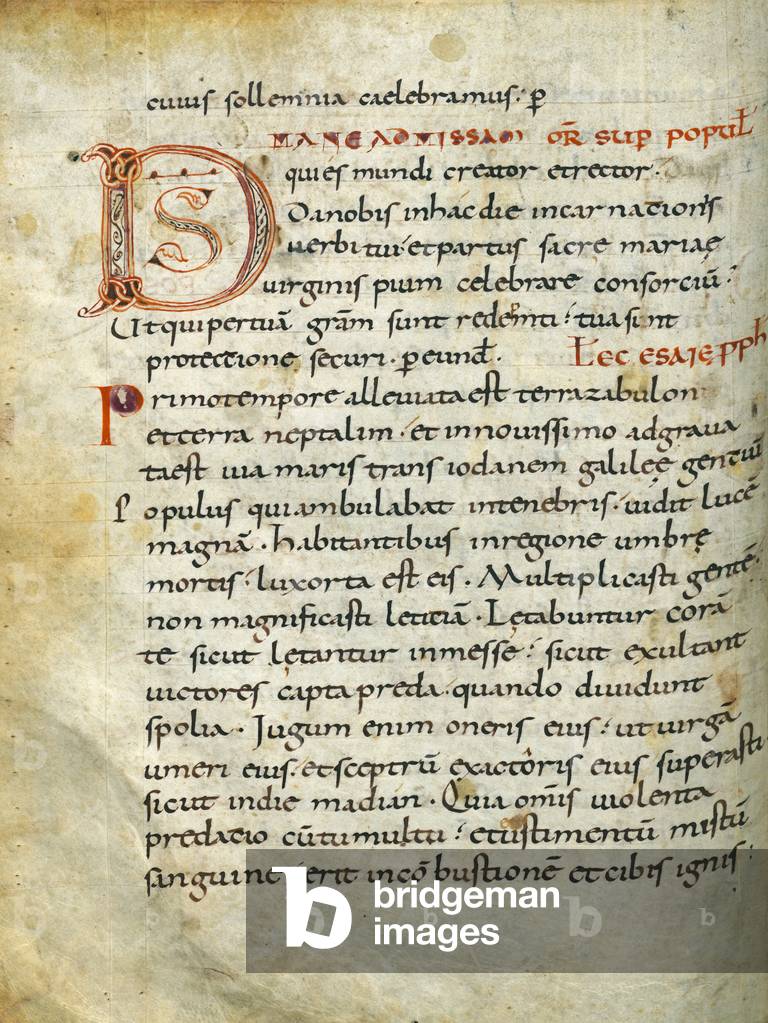 cuius sollemnia caelebramus: p̱
MANE AD MISSAM OR̄ SUP POPUL̄
DS quies mundi creator etrector.
Danobis inhac die incarnationis
uerbi tui. et partus sacre mariae
uirginis pium celebrare consorciū:
Ut qui pertuā grām sunt redemti: tua sint
protectione securi. p̱ eund̄.    LEC ESAIE PPH
Primo tempore alleuiata est terra zabulon
et terra neptalim. et in nouissimo adgraua
ta est uia maris trans iodanem galileę gentiū
Populus qui ambulabat intenebris. uidit lucē
magnā. habitantibus inregione umbrę
mortis. lux orta est eis. Multiplicasti gentē.
non magnificasti letitiā. Lętabuntur corā
te sicut lętantur inmesse: sicut exultant
uictores capta preda. quando diuidunt
spolia. Jugum enim oneris eius: ut uirgā
umeri eius. et sceptrū exactoris eius superasti
sicut indie madian. Quia om̄is uiolenta
predatio cū tumultu: et uestimentū mistū
sanguine erit incōbustionē et cibis ignis:
bridgeman
images